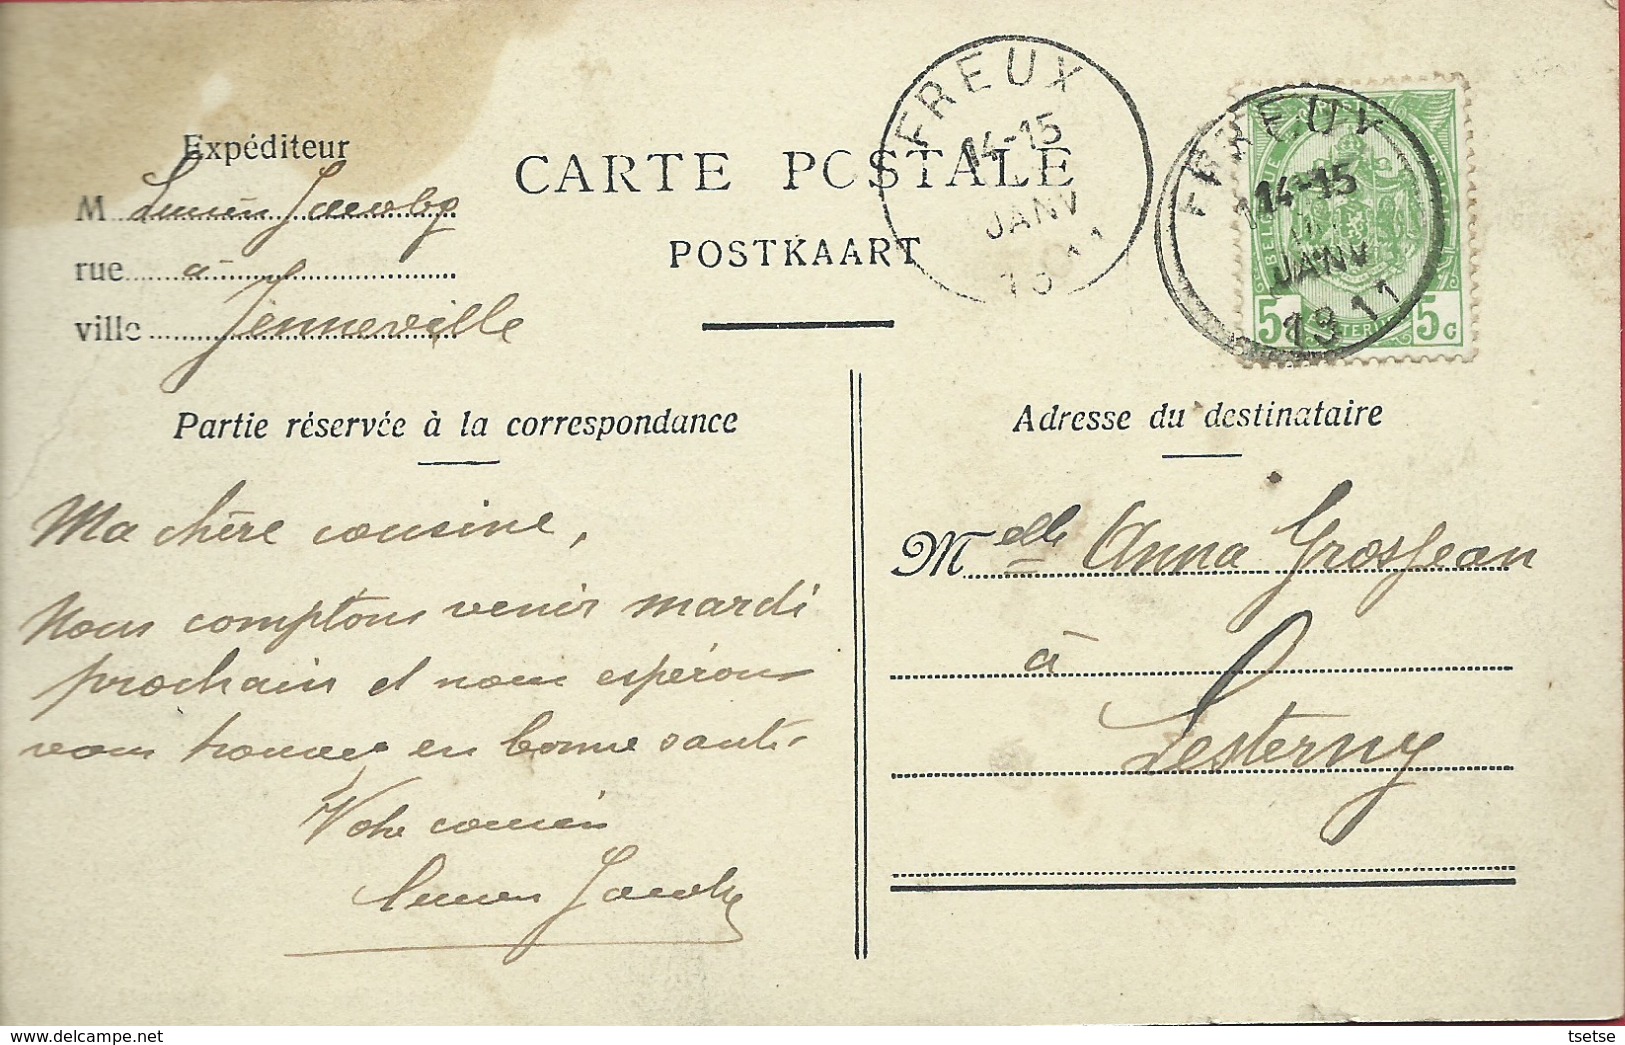 Expéditeur
M Lucien Jacoby
rue à
ville Jenneville
CARTE POSTALE
POSTKAART
FREUX
14-15
JANV
1911
FREUX
14-15
JANV
1911
BELGIQUE
5c 5c
Partie réservée à la correspondance
Adresse du destinataire
Ma chère cousine,
Nous comptons venir mardi
prochain et nous espérons
vous trouver en bonne santé
Votre cousin
Lucien Jacoby
Melle Anna Grosjean
à
Lesterny
tsetse